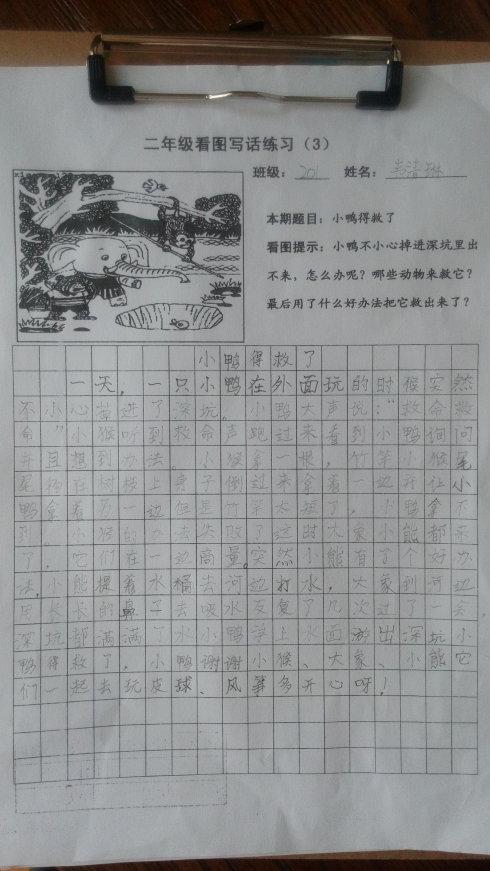 二年级看图写话练习（3）
班级：201 姓名：
本期题目：小鸭得救了
看图提示：小鸭不小心掉进深坑里出
不来，怎么办呢？哪些动物来救它？
最后用了什么好办法把它救出来了？
小鸭得救了
一天，一只小鸭在外面玩的时候突然
不小心掉进了深坑。小鸭大声说：“救命救
命”小猴听到救命声跑过来看到小鸭询问
并且想到办法。小猴拿一根，竹竿小猴尾
尾杨在树枝上身子倒过来拿着一边并让小
鸭拿着另一边但是竹竿太短了，小鸭拿不
到。小猴的办法失败了这时大象小熊都来
了，它们在一边商量。突然小熊有了个好办
法，小熊提着水桶去河边打水，大象到河边
用长长的鼻子去吸水反复了几次过了一会，
深坑都满满了水小鸭浮上水面游出深坑小
鸭得救了，小鸭谢谢小猴、大象、小熊它
们一起去玩皮球、风筝多开心呀！